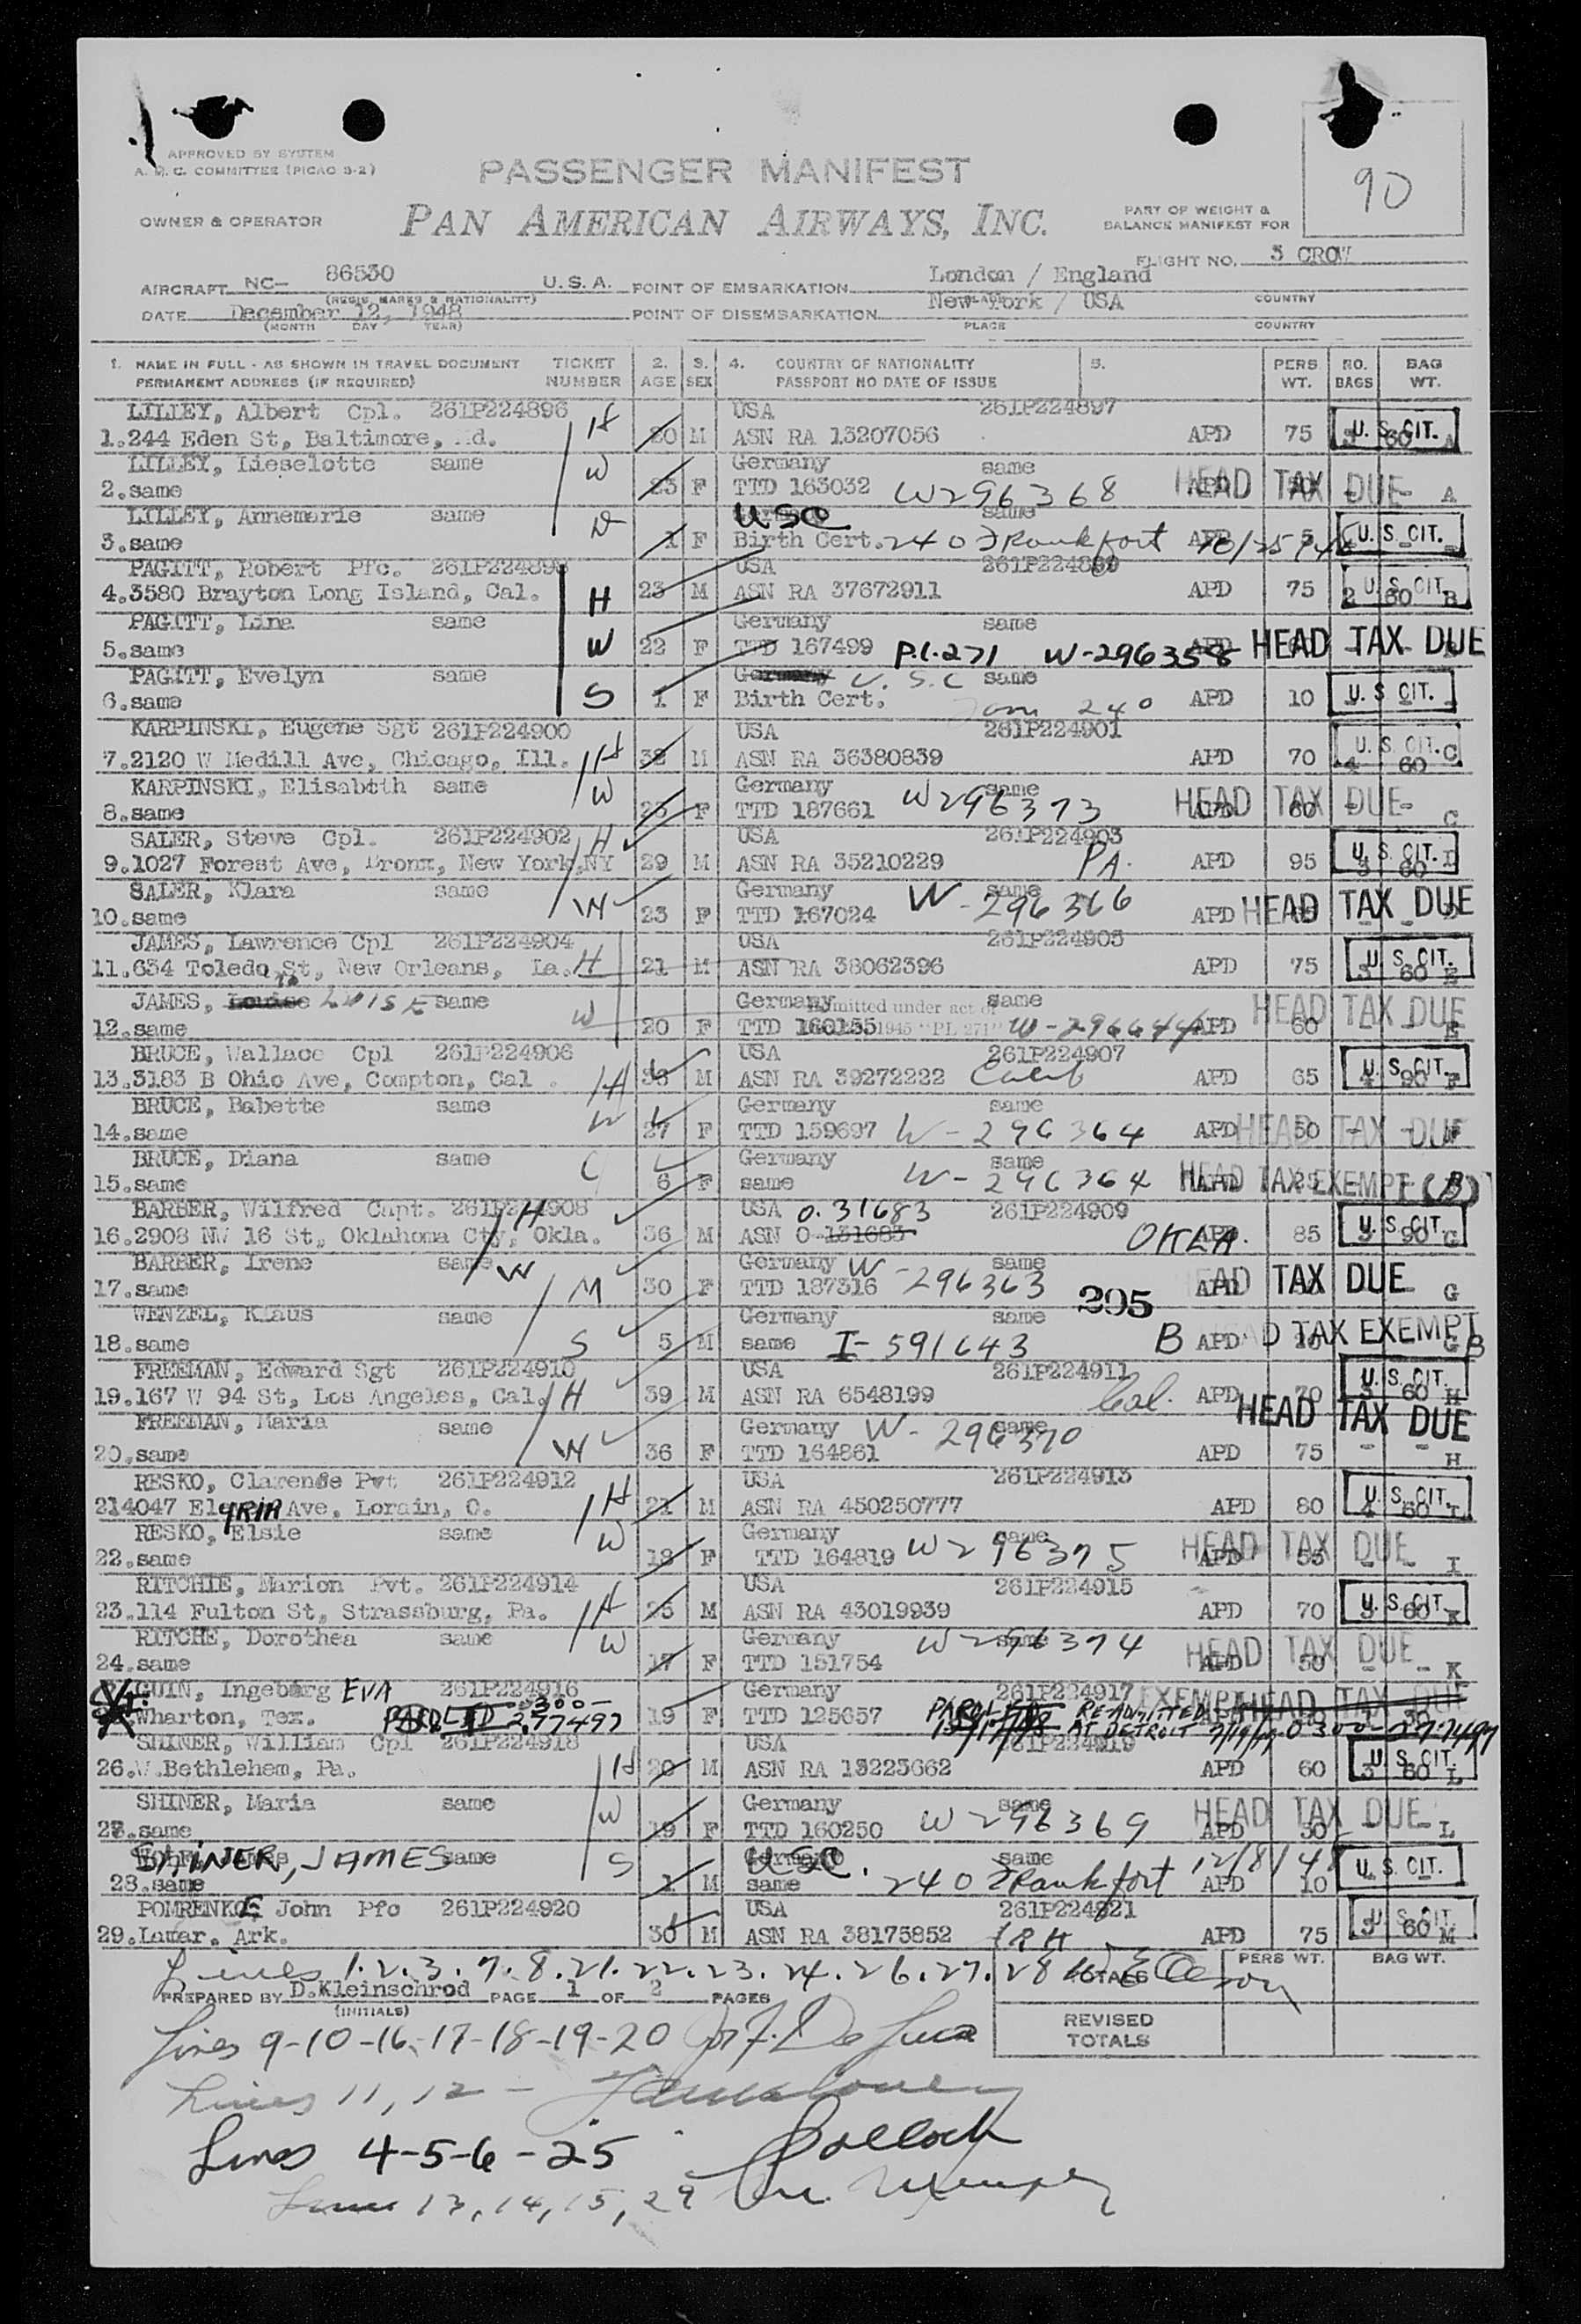 APPROVED BY SYSTEM
A. D. C. COMMITTEE (PICAO 3-2)
PASSENGER MANIFEST
90
OWNER & OPERATOR
PAN AMERICAN AIRWAYS, INC.
PART OF WEIGHT &
BALANCE MANIFEST FOR
FLIGHT NO. 3 CROW
AIRCRAFT NC- 86530 U.S.A. POINT OF EMBARKATION London / England
(REGIS. MARKS & NATIONALITY) COUNTRY
DATE December 12, 1948 POINT OF DISEMBARKATION New York / USA
(MONTH DAY YEAR) PLACE COUNTRY
1. NAME IN FULL - AS SHOWN IN TRAVEL DOCUMENT TICKET 2. 3. 4. COUNTRY OF NATIONALITY 5. PERS NO. BAG
PERMANENT ADDRESS (IF REQUIRED) NUMBER AGE SEX PASSPORT NO DATE OF ISSUE WT. BAGS WT.
LILLEY, Albert Cpl. 261P224896 H USA 261P224897
1. 244 Eden St, Baltimore, Md. 20 M ASN RA 13207056 APD 75 3 60 A U. S. CIT.
LILLEY, Lieselotte same W Germany same
2. same 23 F TTD 163032 W296368 APD HEAD TAX DUE - - A
LILLEY, Annemarie same D USC same
3. same 1 F Birth Cert. 240 Frankfort 10/25/48 APD 5 U. S. CIT.
PAGITT, Robert Pfc. 261P224898 H USA 261P224899
4. 3580 Brayton Long Island, Cal. 23 M ASN RA 37672911 APD 75 2 60 B U. S. CIT.
PAGITT, Lina same W Germany same
5. same 22 F TTD 167499 P.L.271 W-296358 APD HEAD TAX DUE
PAGITT, Evelyn same S Germany U.S.C same
6. same 1 F Birth Cert. 240 APD 10 U. S. CIT.
KARPINSKI, Eugene Sgt 261P224900 H USA 261P224901
7. 2120 W Medill Ave, Chicago, Ill. 38 M ASN RA 36380839 APD 70 4 60 C U. S. CIT.
KARPINSKI, Elisabtth same W Germany same
8. same 25 F TTD 187661 W296373 APD 60 HEAD TAX DUE - - C
SALER, Steve Cpl. 261P224902 H USA 261P224903
9. 1027 Forest Ave, Bronx, New York, NY 29 M ASN RA 35210229 PA. APD 95 3 60 D U. S. CIT.
SALER, Klara same W Germany same
10. same 23 F TTD 167024 W-296366 APD HEAD TAX DUE - - D
JAMES, Lawrence Cpl 261P224904 H USA 261P224905
11. 634 Toledo St, New Orleans, La. 21 M ASN RA 38062396 APD 75 3 60 E U. S. CIT.
JAMES, Louise LUISE same W Germany Admitted under act of same
12. same 20 F TTD 160155 1945 "PL 271" W-296644 APD 60 HEAD TAX DUE - - E
BRUCE, Wallace Cpl 261P224906 H USA 261P224907
13. 3183 B Ohio Ave, Compton, Cal . 38 M ASN RA 39272222 Calif APD 65 4 90 F U. S. CIT.
BRUCE, Babette same W Germany same
14. same 27 F TTD 159697 W-296364 APD 50 HEAD TAX DUE - - F
BRUCE, Diana same C Germany same
15. same 6 F same W-296364 APD HEAD TAX EXEMPT (B)
BARBER, Wilfred Capt. 261P224908 H USA O.31683 261P224909
16. 2908 NW 16 St, Oklahoma Cty, Okla. 36 M ASN O-131683 OKLA. APD 85 3 90 G U. S. CIT.
BARBER, Irene same W Germany W-296363 same
17. same M 30 F TTD 187316 295 APD HEAD TAX DUE G
WENZEL, Klaus same Germany same
18. same S 5 M same I-591643 B APD HEAD TAX EXEMPT G B
FREEMAN, Edward Sgt 261P224910 H USA 261P224911
19. 167 W 94 St, Los Angeles, Cal. 39 M ASN RA 6548199 Cal. APD 70 3 60 H U. S. CIT.
FREEMAN, Maria same W Germany W-296370 same HEAD TAX DUE
20. same 36 F TTD 164861 APD 75 - - H
RESKO, Clarence Pvt 261P224912 H USA 261P224913
21 4047 ElYRIA Ave, Lorain, O. 21 M ASN RA 450250777 APD 80 4 60 I U. S. CIT.
RESKO, Elsie same W Germany same
22. same 18 F TTD 164819 W296375 APD 55 HEAD TAX DUE - - I
RITCHIE, Marion Pvt. 261P224914 H USA 261P224915
23. 114 Fulton St, Strassburg, Pa. 25 M ASN RA 43019939 APD 70 3 60 K U. S. CIT.
RITCHE, Dorothea same W Germany same
24. same 17 F TTD 151754 W296374 APD 50 HEAD TAX DUE - - K
GUIN, Ingeborg EVA 261P224916 0300- Germany 261P224917 EXEMPT HEAD TAX DUE
Wharton, Tex. PAROLED 277497 19 F TTD 125657 PAROLED RE-ADMITTED AT DETROIT 0300-277497
SHINER, William Cpl 261P224918 H USA 261P224919
26. W.Bethlehem, Pa. 20 M ASN RA 13223662 APD 60 3 60 L U. S. CIT.
SHINER, Maria same W Germany same
27. same 19 F TTD 160250 W296369 APD 50 HEAD TAX DUE - L
SHINER, JAMES same S USC. same
28. same 1 M same 240 Frankfort 12/8/48 APD 10 U. S. CIT.
POMRENKE, John Pfc 261P224920 USA 261P224921
29. Lamar, Ark. 30 M ASN RA 38175852 ARK APD 75 3 60 M U. S. CIT.
Lines 1.2.3.7.8.21.22.23.24.26.27.28 TOTALS PERS WT. BAG WT.
PREPARED BY D.Kleinschrod PAGE 1 OF 2 PAGES
(INITIALS)
REVISED
TOTALS
Lines 9-10-16-17-18-19-20 De Luca
Lines 11, 12 -
Lines 4-5-6-25 Pollock
Lines 13, 14, 15, 29